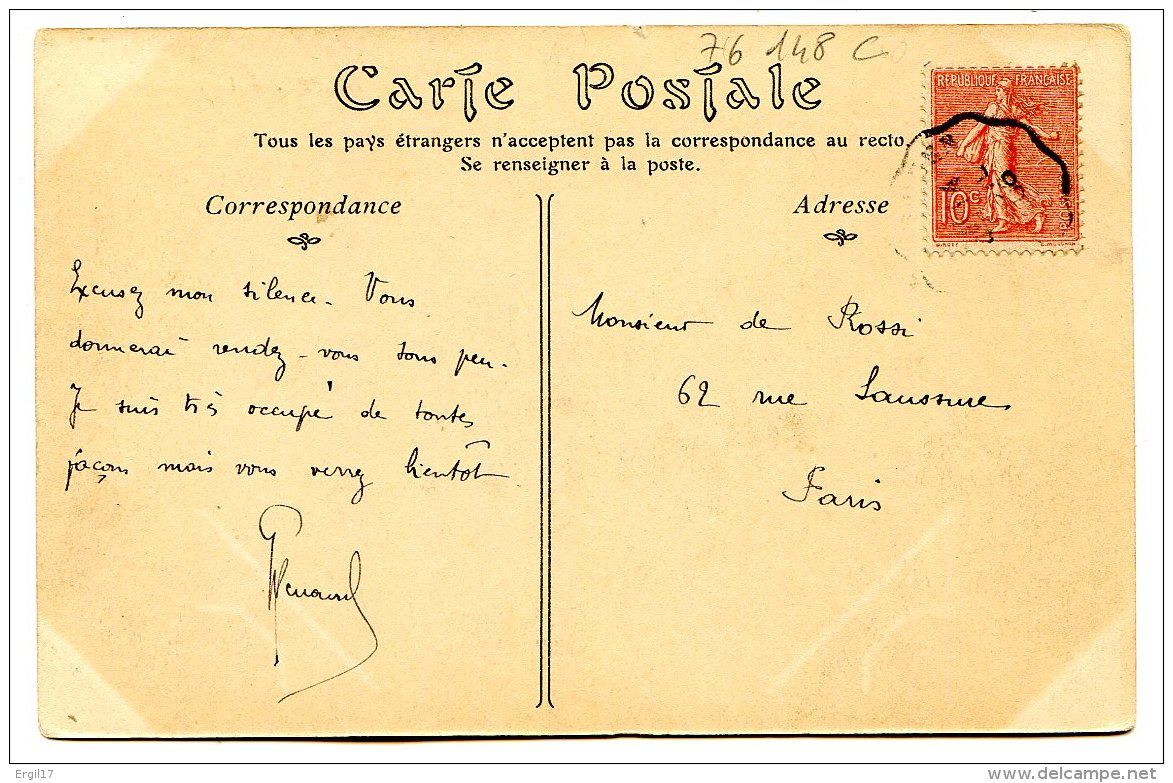 76 148 C
Carte Postale
Tous les pays étrangers n'acceptent pas la correspondance au recto.
Se renseigner à la poste.
Correspondance
Adresse
RÉPUBLIQUE FRANÇAISE
10c
POSTES
Excusez mon silence. Vous
donnerai rendez-vous sous peu.
Je suis très occupé de toutes
façons mais vous verrez bientôt
Monsieur de Rossi
62 rue Saussure
Paris
Ergil17
©DELCAMPE